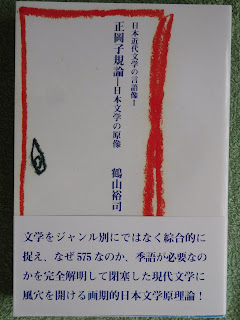 日本近代文学の言語像Ⅰ
正岡子規論―日本文学の原像
鶴山裕司
文学をジャンル別にではなく綜合的に
捉え、なぜ575なのか、季語が必要なの
かを完全解明して閉塞した現代文学に
風穴を開ける画期的日本文学原理論！